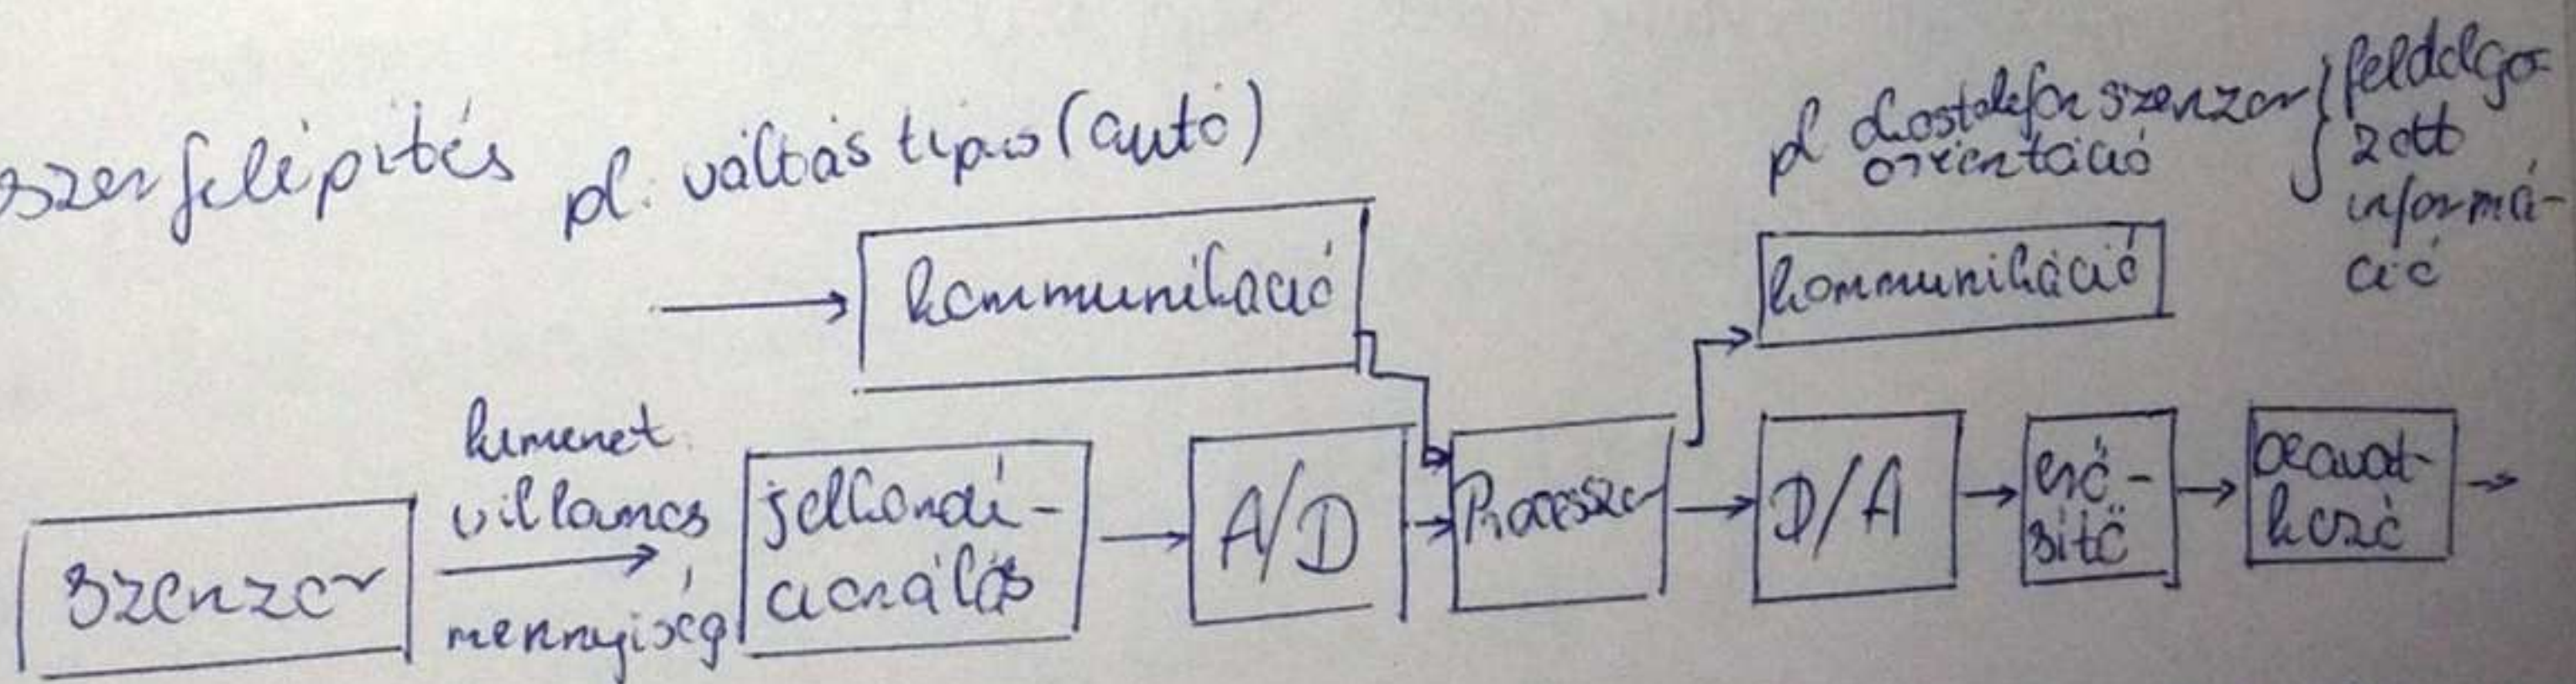 szerfelépítés pl. váltás típus (autó)
pl okostelefon szenzor } feldolgo-
orientáció
zott
informá-
ció
kommunikáció
kommunikáció
kimenet
villamos
mennyiség
szenzor
jelkondi-
cionálás
A/D
Processzor
D/A
erő-
sítő
beavat-
kozó